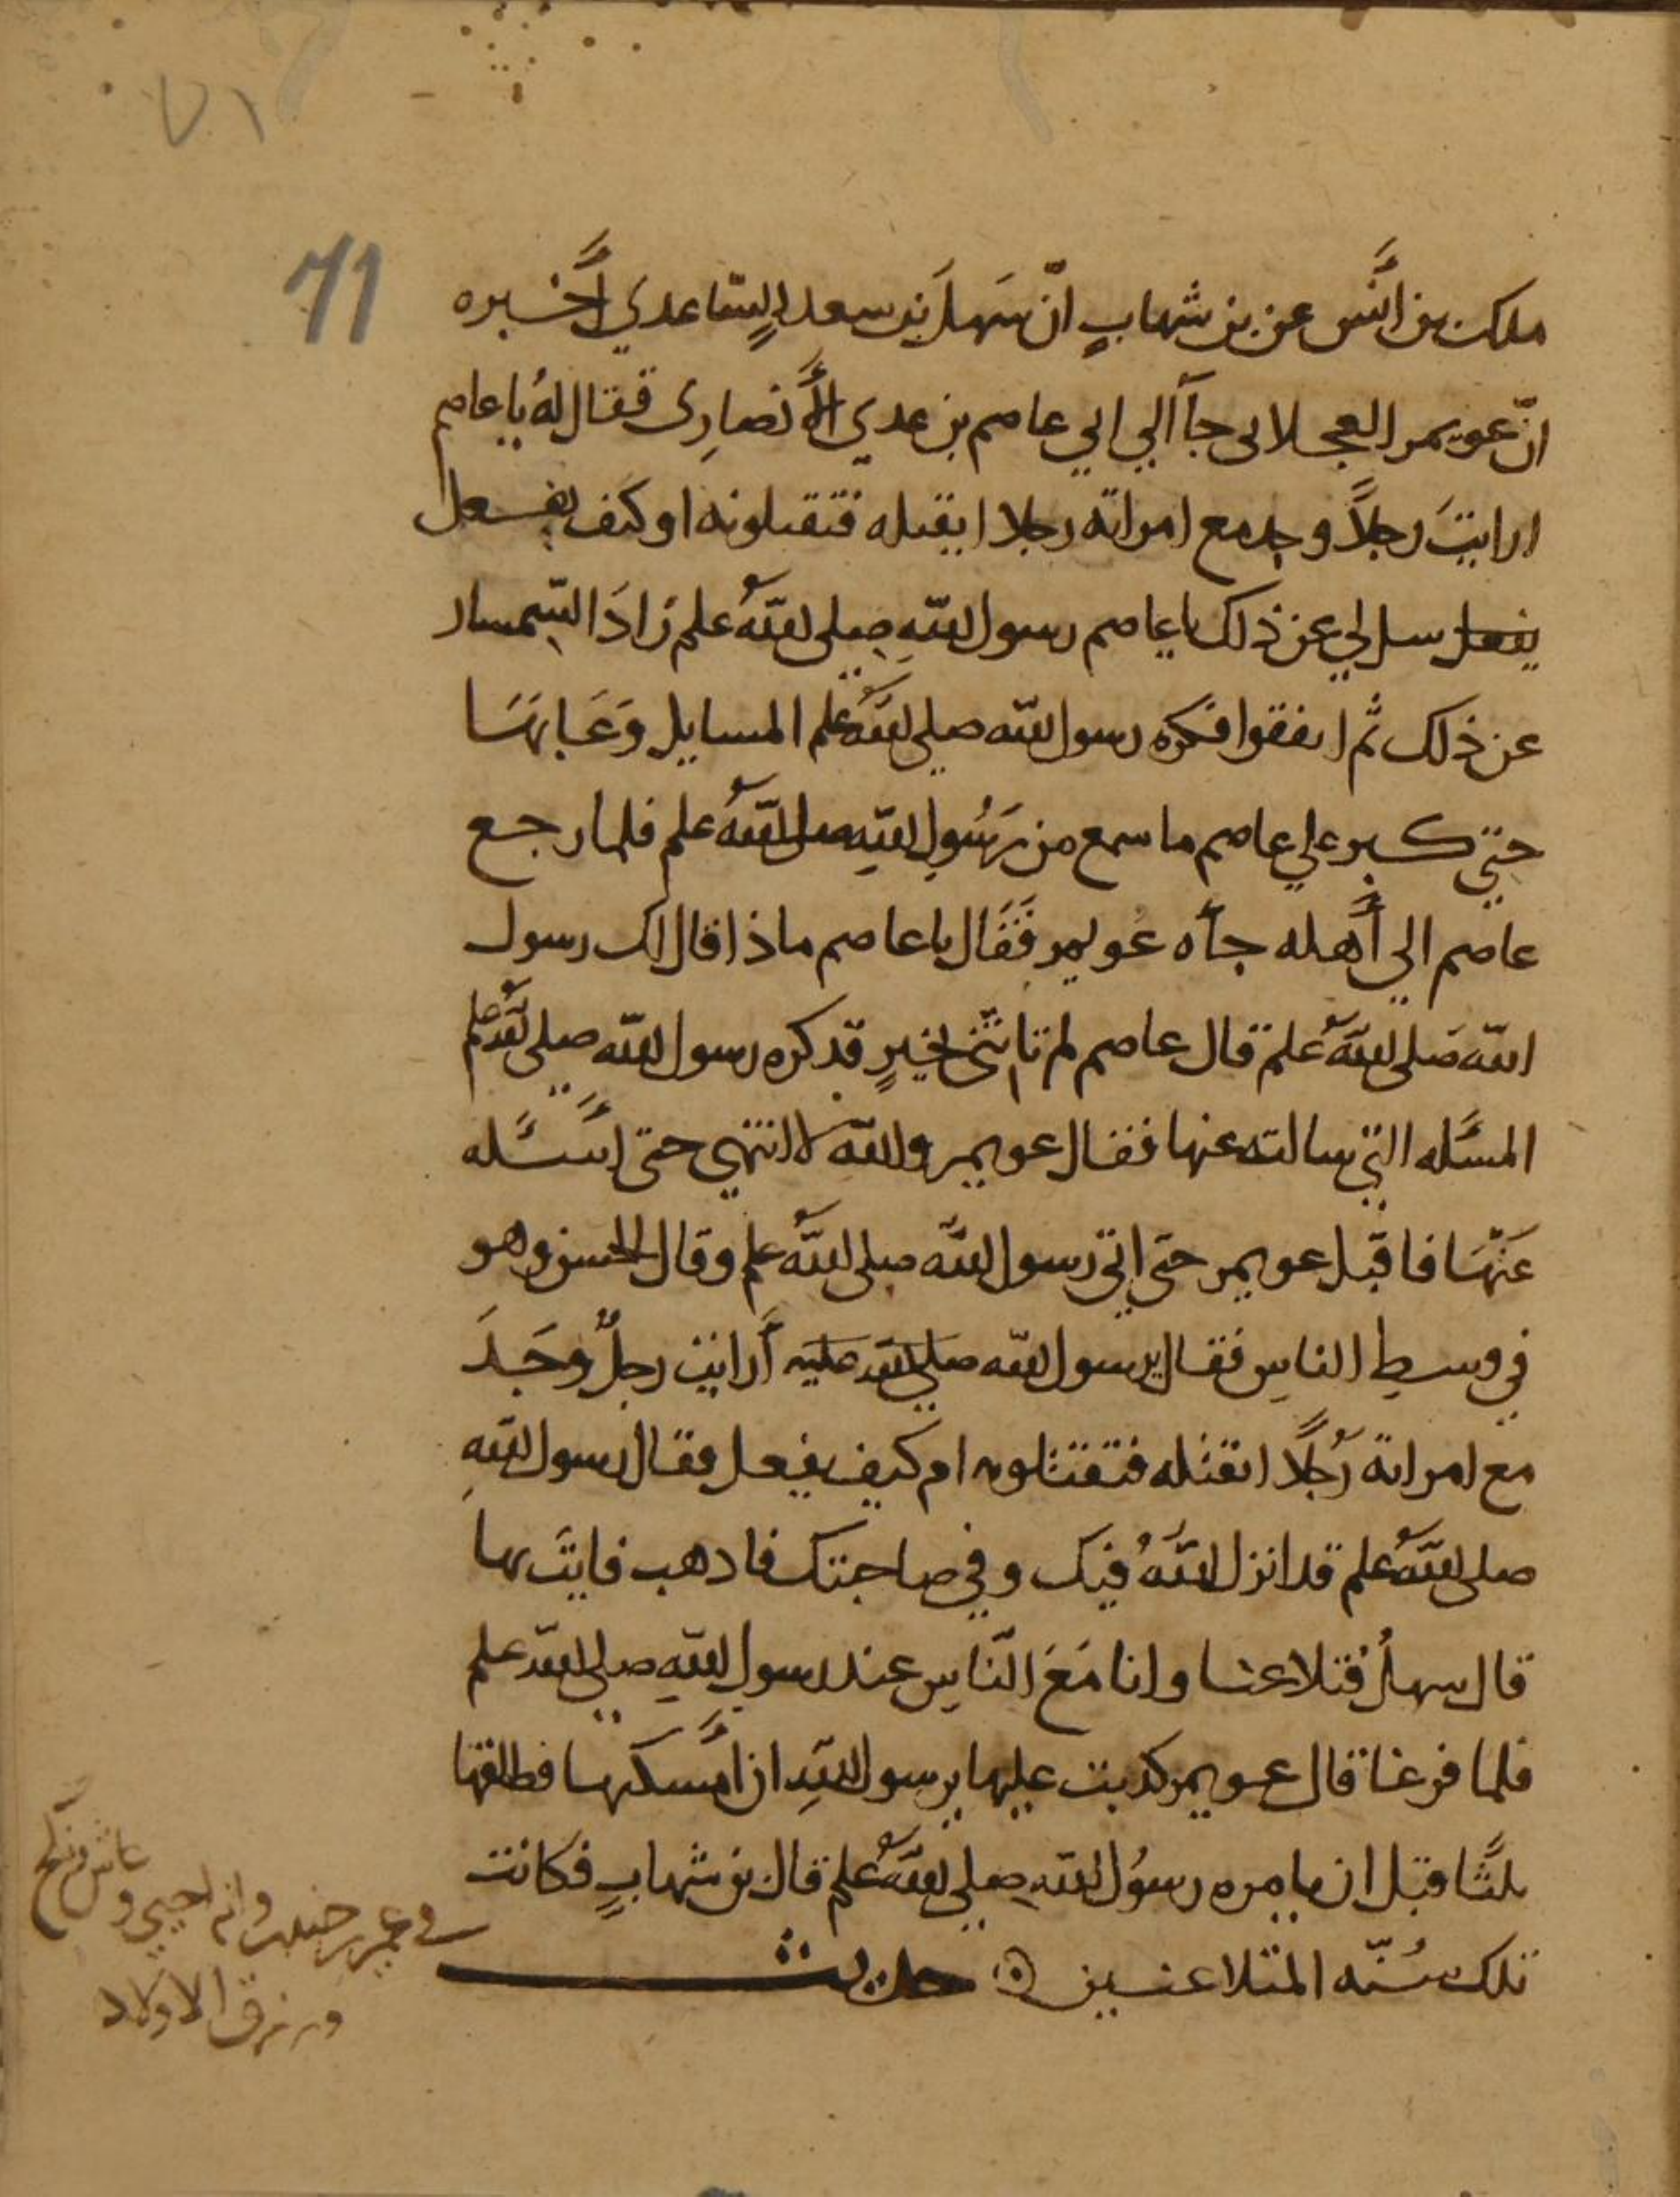 ٧١
71
ملك بن انَس عن بن شهابٍ انّ سَهلَ بن سعد السّاعدي أَخبره
انّ عويمر العجلانى جآ الي ابي عاصم بن عدي الأَنصارِى فقال لهُ يا عاصم
ارايتَ رجلاً وجد مع امراته رجلا ايقتله فتقتلونه او كيف يفعل
يفعل سل لي عن ذلك يا عاصم رسول اللهِ صلى اللهُ علم زادَ السّمسار
عن ذلك ثم اتفقوا فكره رسول الله صلى اللهُ علم المسايل وَعَابهَا
حتي كبر علي عاصم ما سمع من رَسُولِ اللهِ صلى اللهُ علم فلما رجع
عاصم الي أَهله جآه عُويمر فَقَال يا عاصم ماذا قال لك رسول
الله صَلى اللهُ علم قال عاصم لم تاتني بخيرٍ قد كره رسول الله صلى الله علم
المسَله التي سالته عنها فقال عويمر والله لا انتهي حتى اسَئله
عَنْهَا فاقبل عويمر حتى اتي رسول الله صلى اللهُ علم وقال الحسن وهو
في وسطِ الناسِ فقال يرسول الله صلي الله عليه أَرايت رجلٌ وَجَدَ
مع امراته رَجُلاً ايقتله فتقتلونه ام كيف يفعل فقال رسول اللهِ
صلى اللهُ علم قد انزل اللهُ فيك وفي صاحبتك فادهب فايتَ بها
قال سهلُ فتلاعنا وانا مَعَ النّاسِ عند رسولِ اللهِ صلى الله علم
فلما فرغا قال عويمر كدبت عليها يرسول اللهِ ان أَمسكها فطلقها
ثلثًا قبل ان يامره رسوُل الله صلى اللهُ علم قال بن شهابٍ فكانت
تلك سُنّه المتلاعنين حديث
ورزق الاولاد